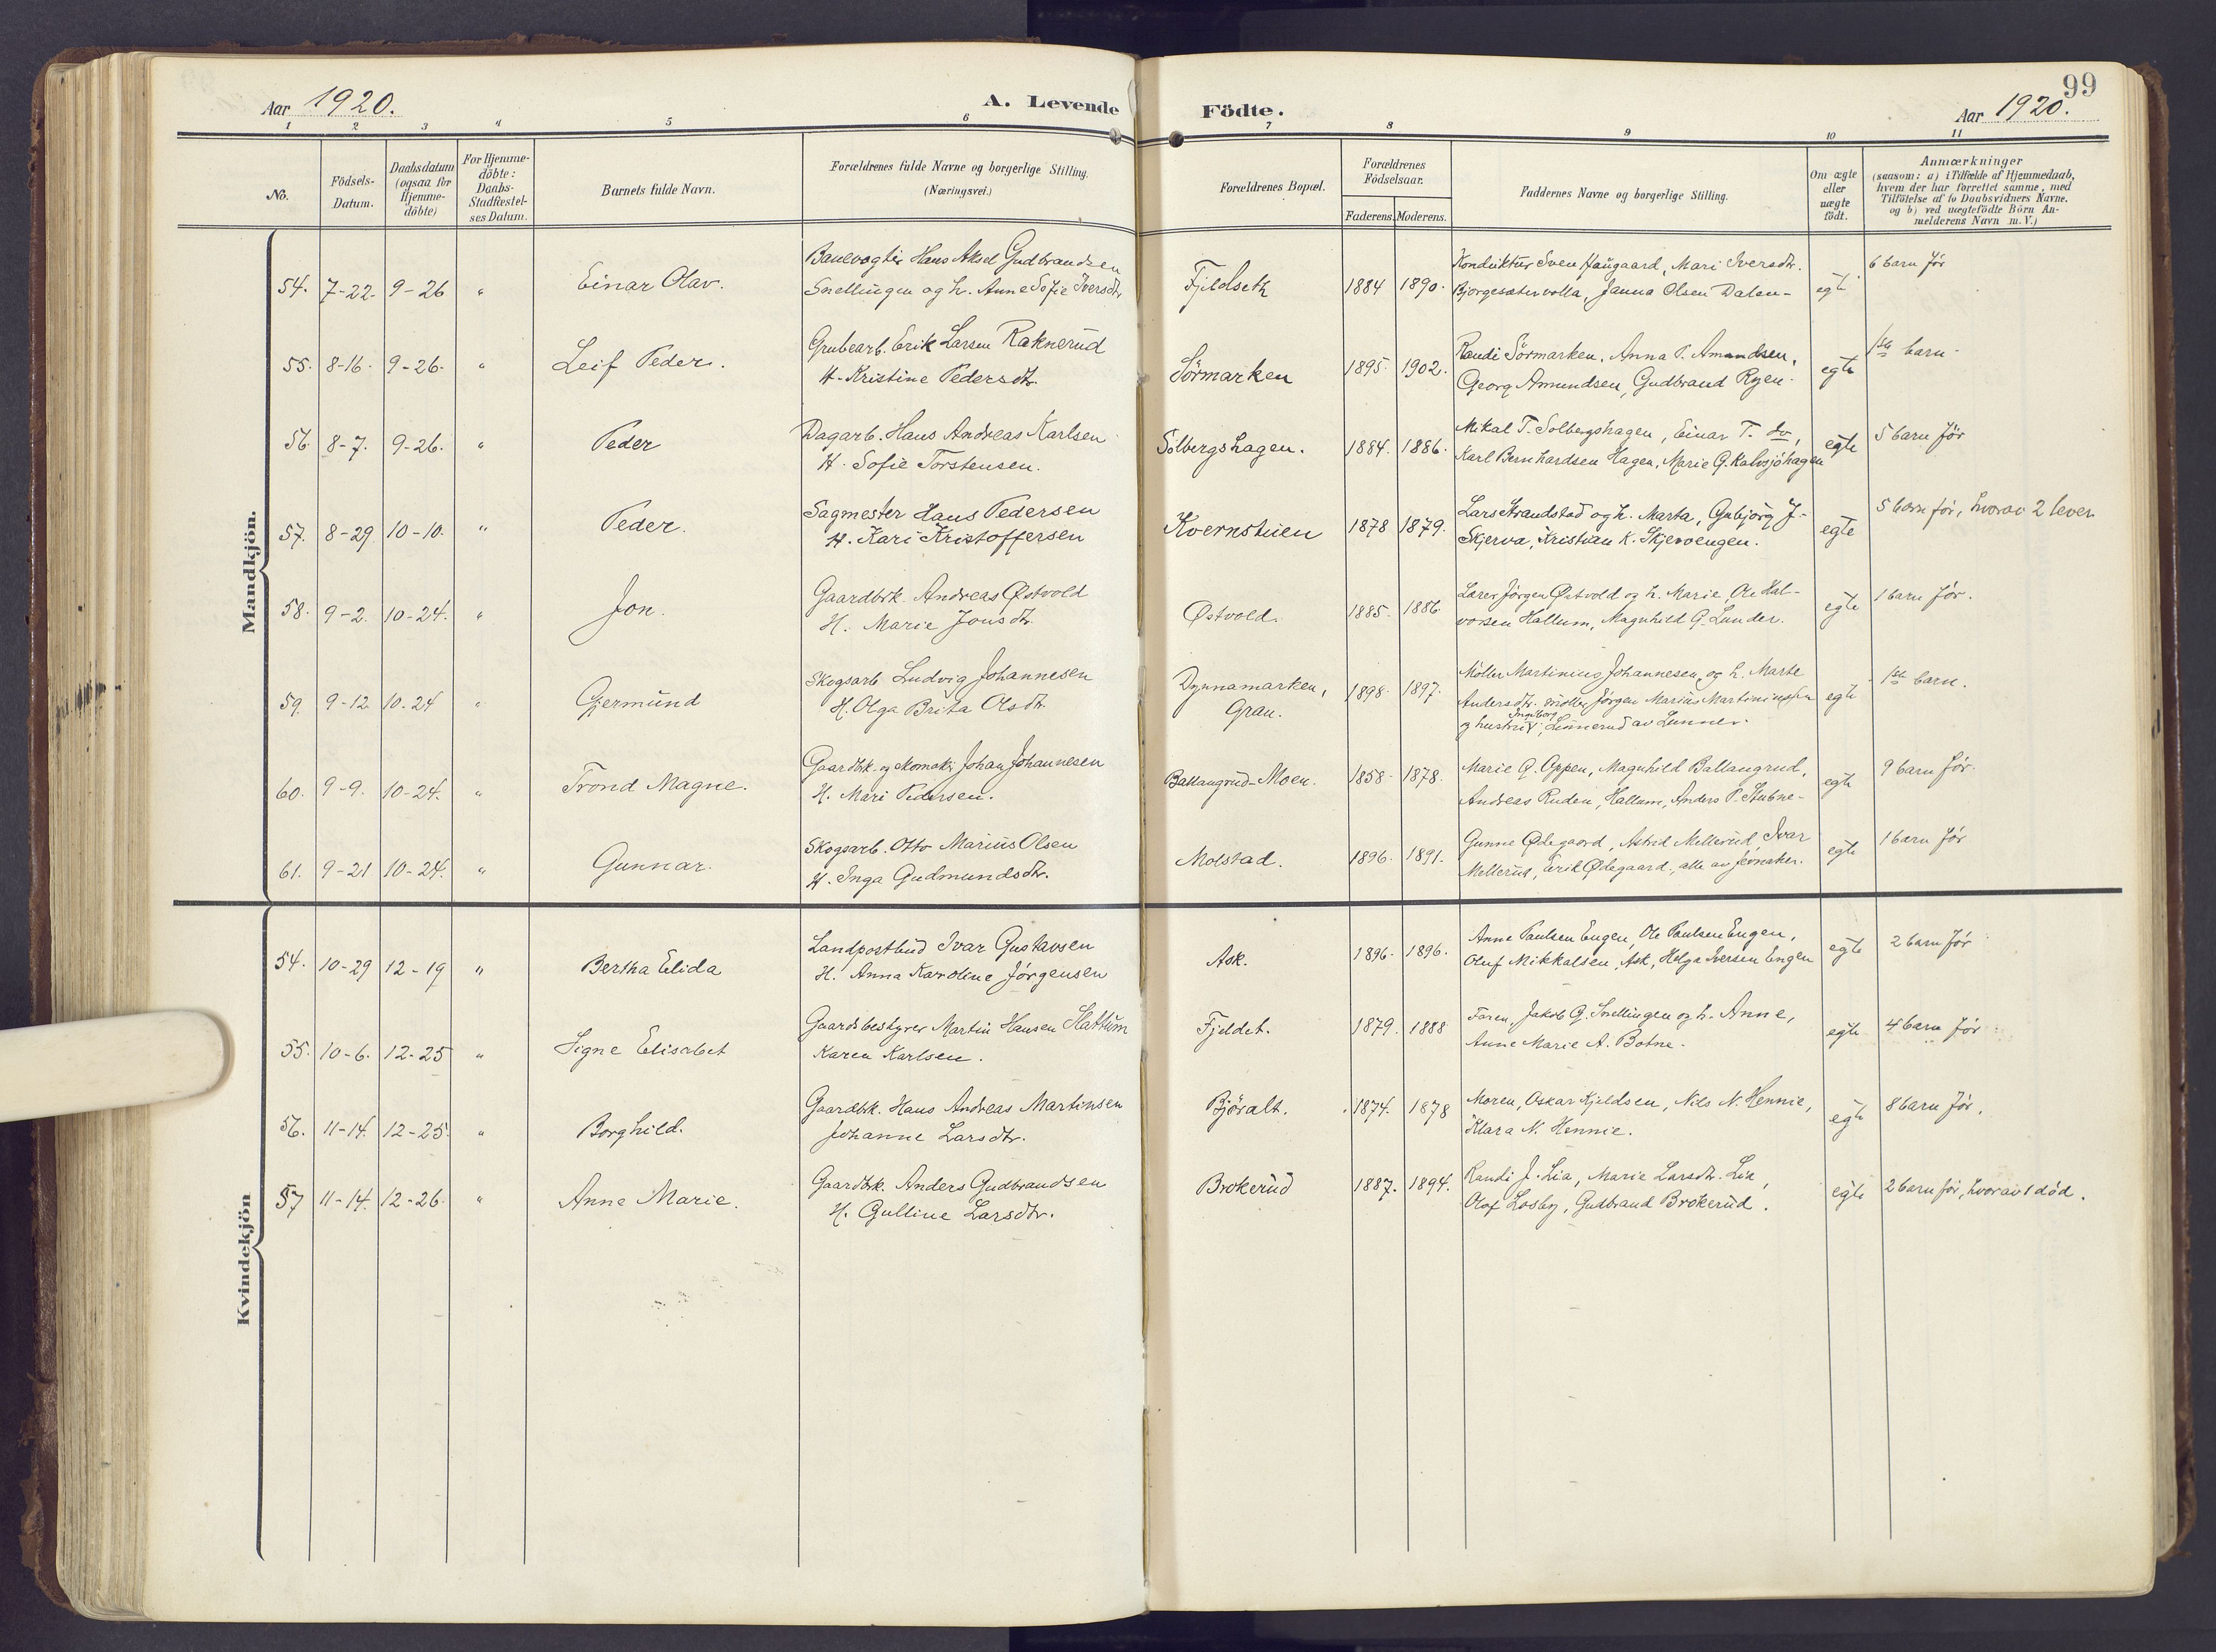 Aar 1920.
A. Levende Födte.
99
Aar 1920.
1 2 3 4 5 6 7 8 9 10 11
No.
Födsels-Datum.
Daabsdatum (ogsaa for Hjemme-döbte)
For Hjemme-döbte: Daabs-Stadfæstel-ses Datum.
Barnets fulde Navn.
Forældrenes fulde Navne og borgerlige Stilling. (Næringsvei.)
Forældrenes Bopæl.
Forældrenes Födselsaar.
Faderens. Moderens.
Faddernes Navne og borgerlige Stilling.
Om ægte eller uægte födt.
Anmærkninger
(saasom: a) i Tilfælde af Hjemmedaab,
hvem der har forrettet samme, med
Tilföielse af to Daabsvidners Navne.
og b) ved uægtefödte Börn An-
melderens Navn m. V.)
Mandkjön.
54. 7-22. 9-26 " Einar Olav. Banevogter Hans Aksel Gudbrandsen
Snellingen og h. Anne Sofie Iversdtr. Fjeldseth 1884 1890. Konduktør Sven Haugaard, Mari Iversdtr.
Bjørgesætervolla, Janna Olsen Dalen- egte 6 barn før
55. 8-16. 9-26. " Leif Peder. Grubearb. Erik Larsen Raknerud
H. Kristine Pedersdtr. Sörmarken 1895. 1902. Randi Sörmarken, Anna P. Amundsen,
Georg Amundsen, Gudbrand Ryen. egte 1ste barn.
56. 8-7. 9-26. " Peder Dagarb. Hans Andreas Karlsen
H. Sofie Torstensen. Solbergshagen. 1884. 1886. Mikal T. Solbergshagen, Einar T. do,
Karl Bernhardsen Hagen, Marie G. Kalvsjöhagen egte 5 barn før
57. 8-29 10-10. " Peder. Sagmester Hans Pedersen
H. Kari Kristoffersen Kvernstuen 1878 1879. Lars Strandstad og h. Marta, Gubjørg J.
Skjerva, Kristian K. Skjervengen. egte 5 barn før, hvorav 2 lever
58. 9-2. 10-24. " Jon. Gaardbrk. Andreas Østvold
H. Marie Jonsdtr. Østvold. 1885. 1886 Lærer Jørgen Østvold og h. Marie, Ole Hal-
vorsen Hallum, Magnhild G. Lunder. egte 1 barn før.
59. 9-12 10-24 " Gjermund Skogsarb. Ludvig Johannesen
H. Olga Brita Olsdtr. Dynnamarken,
Gran. 1898. 1897. Møller Martinius Johannesen og h. Marte
Andersdtr. møller Jørgen Marius Martiniussen
og hustru Ingeborg, Linnerud av Lunner. egte 1ste barn.
60. 9-9. 10-24. " Trond Magne. Gaardbrk. og skomaker Johan Johannesen
H. Mari Pedersen. Ballangrud-Moen. 1858. 1878. Marie G. Oppen, Magnhild Ballangrud,
Andreas Ruden, Hallum, Anders P. Stubne- egte 9 barn før.
61. 9-21 10-24. " Gunnar. Skogsarb. Otto Marius Olsen
H. Inga Gudmundsdtr. Molstad. 1896. 1891. Gunne Ødegaard, Astrid Mellerud, Ivar
Mellerud, Erik Ødegaard, alle av Jevnaker. egte 1 barn før
Kvindekjön
54. 10-29 12-19 " Bertha Elida Landpostbud Ivar Gustavsen
H. Anna Karoline Jørgensen Ask. 1896. 1896. Anne Paulsen Engen, Ole Paulsen Engen,
Oluf Mikkalsen, Ask, Helga Iversen Engen egte 2 barn før
55. 10-6. 12-25 " Signe Elisabet Gaardsbestyrer Martin Hansen Hattum
Karen Karlsen. Fjeldet. 1879. 1888 Faren, Jakob G. Snellingen og h. Anne,
Anne Marie A. Botne. egte 4 barn før
56. 11-14. 12-25. " Borghild. Gaardbrk. Hans Andreas Martinsen
Johanne Larsdtr. Björalt. 1874. 1878 Moren, Oskar Kjeldsen, Nils N. Hennie,
Klara N. Hennie. egte 8 barn før.
57 11-14. 12-26. " Anne Marie. Gaardbrk. Anders Gudbrandsen
H. Gulline Larsdtr. Brokerud 1887. 1894. Randi J. Lia, Marie Larsdtr. Lia,
Olaf Losby, Gudbrand Brokerud. egte 2 barn før, hvorav 1 död.